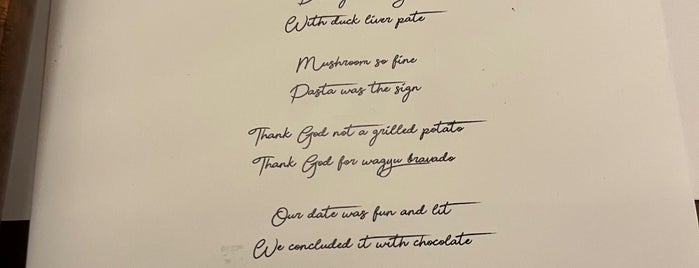 With duck liver pate
Mushroom so fine
Pasta was the sign
Thank God not a grilled potato
Thank God for wagyu bravado
Our date was fun and lit
We concluded it with chocolate